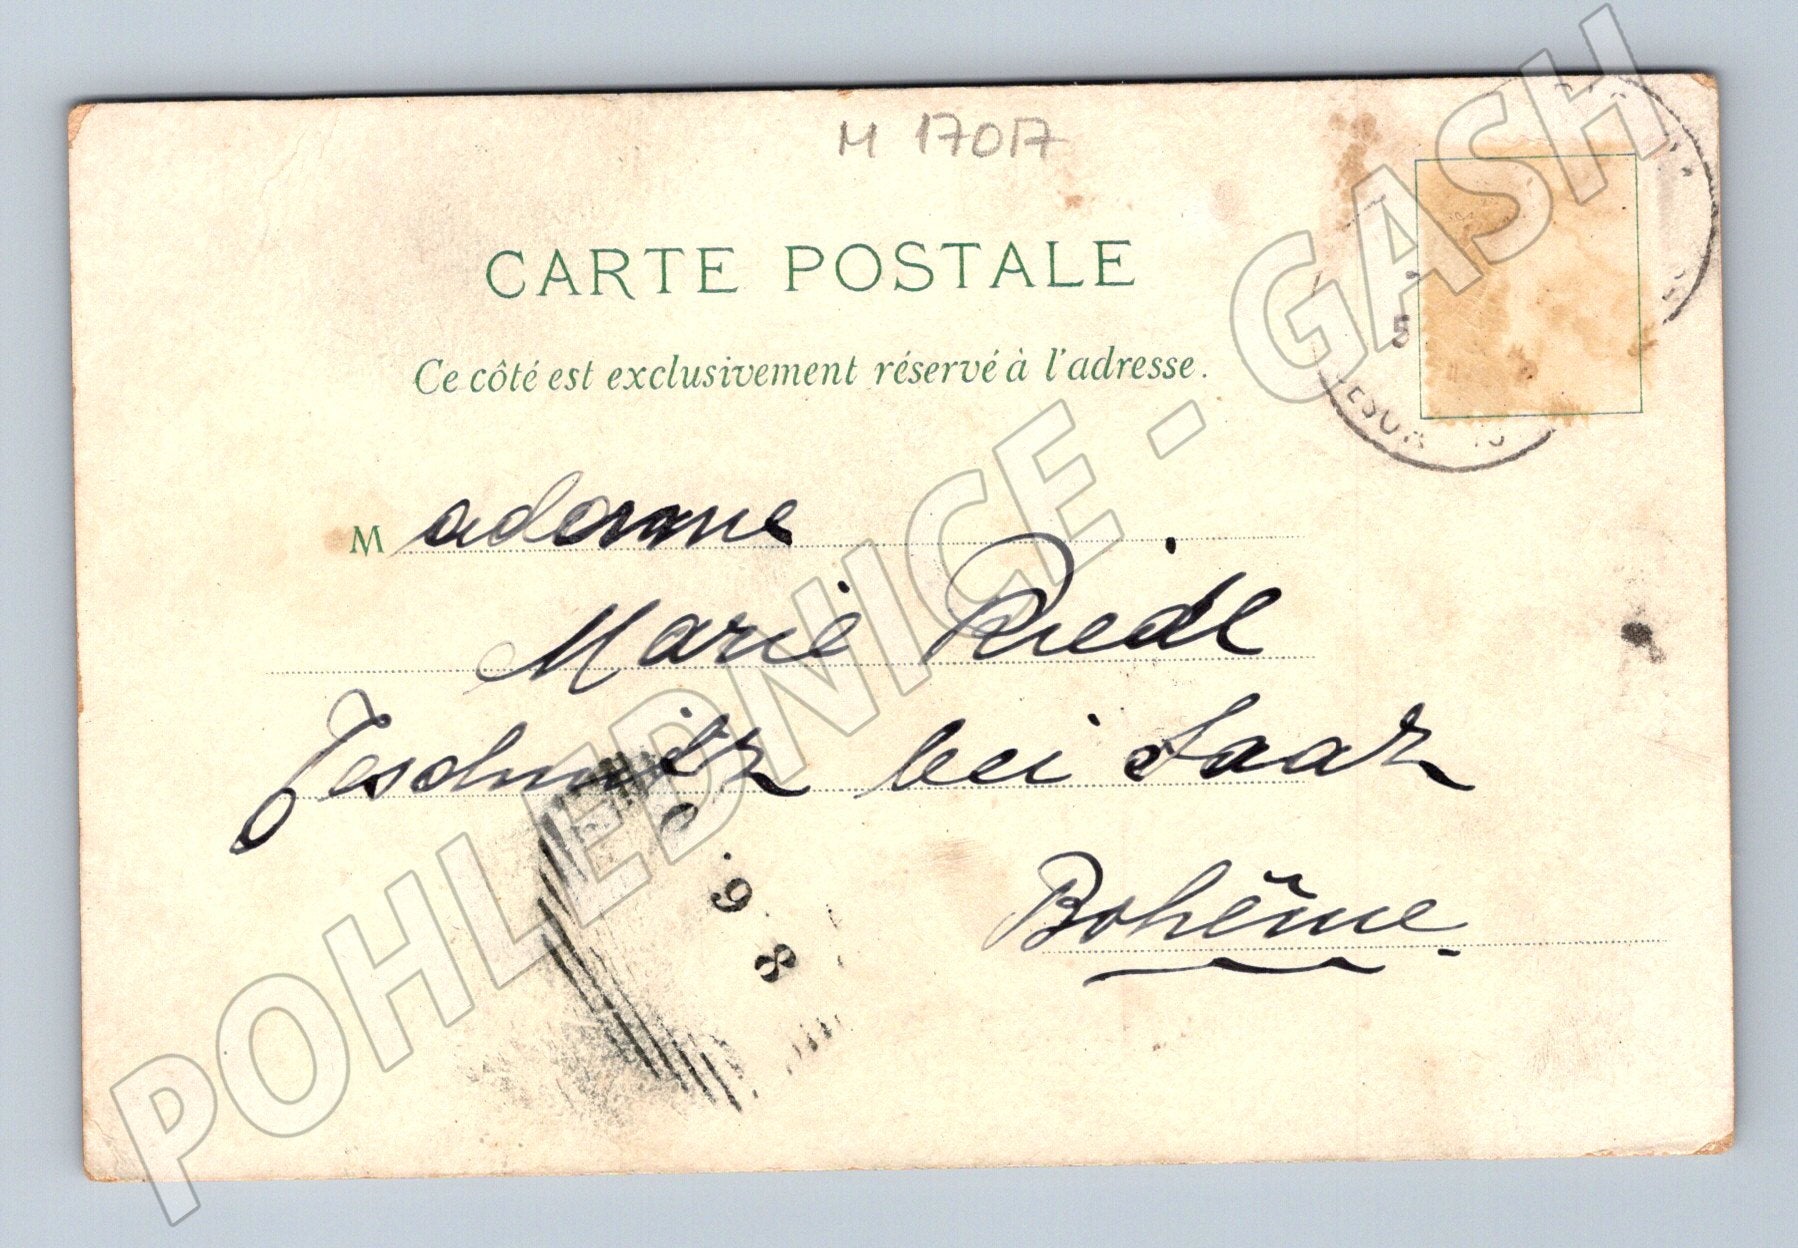 M 17017
CARTE POSTALE
Ce côté est exclusivement réservé à l'adresse.
5
Madame
Marie Riedl
Jeschnitz bei Saaz
Bohême.
9. 8
POHLEDNICE - GASH